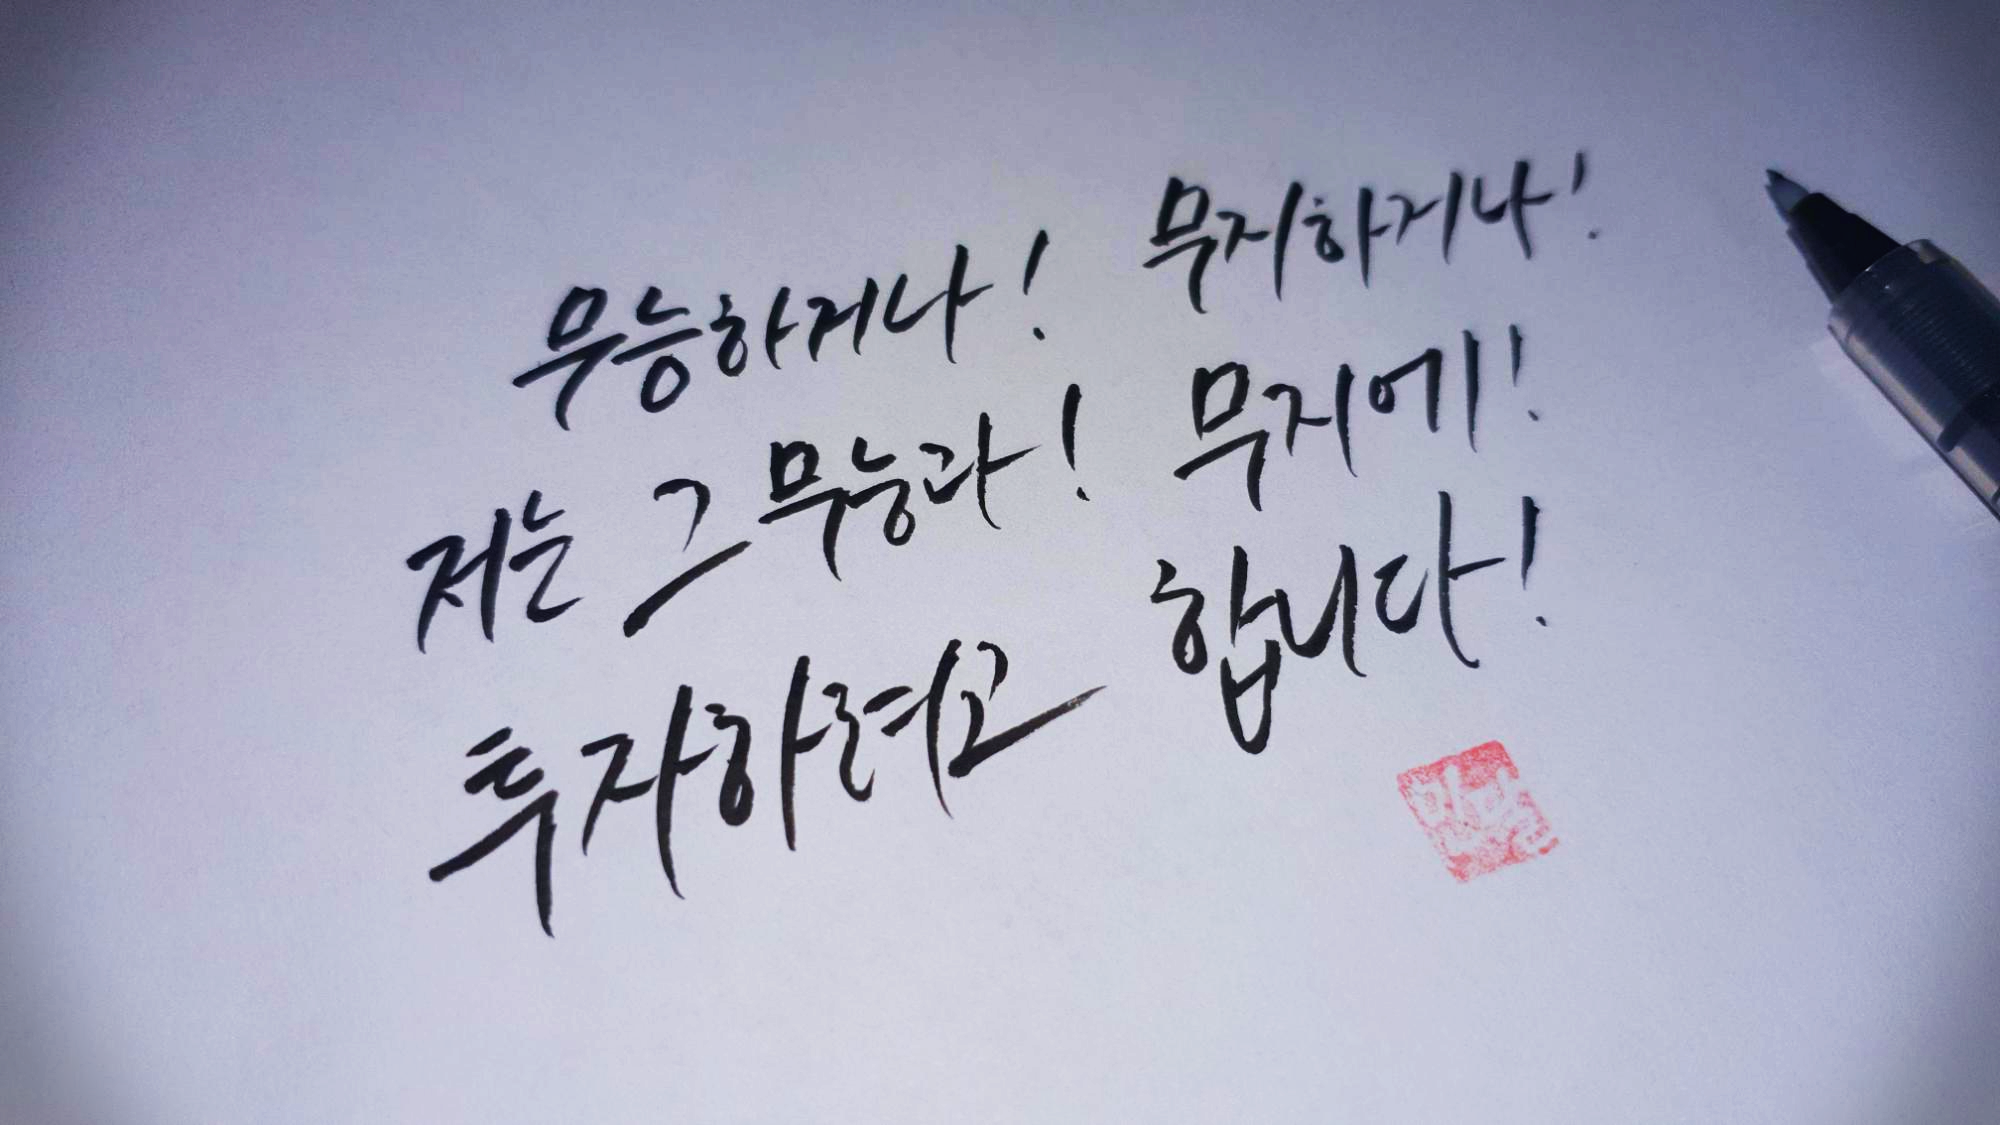 무능하거나! 무지하거나!
저는 그 무능과! 무지에!
투자하려고 합니다!